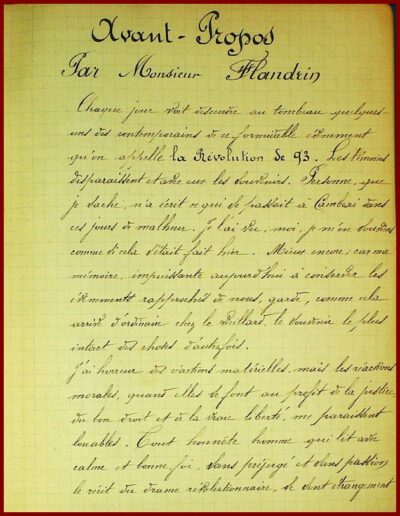 Avant-Propos
Par Monsieur Flandrin
Chaque jour voit descendre au tombeau quelques-
uns des contemporains de ce formidable évènement
qu'on appelle la Révolution de 93. Les témoins
disparaissent et avec eux les souvenirs. Personne, que
je sache, n'a écrit ce qui se passait à Cambrai dans
ces jours de malheur. Je l'ai vu, moi, je m'en souviens
comme si cela s'était fait hier. Mieux encore; car ma
mémoire, impuissante aujourd'hui à conserver les
évènements rapprochés de nous, garde, comme cela
arrive d'ordinaire chez le vieillard, le souvenir le plus
intact des choses d'autrefois.
J'ai horreur des réactions matérielles, mais les réactions
morales, quand elles se font au profit de la justice,
du bon droit et de la vraie liberté, me paraissent
louables. Tout honnête homme qui lit avec
calme et bonne foi, sans préjugé et sans passion
le récit du drame révolutionnaire, se sent étrangement